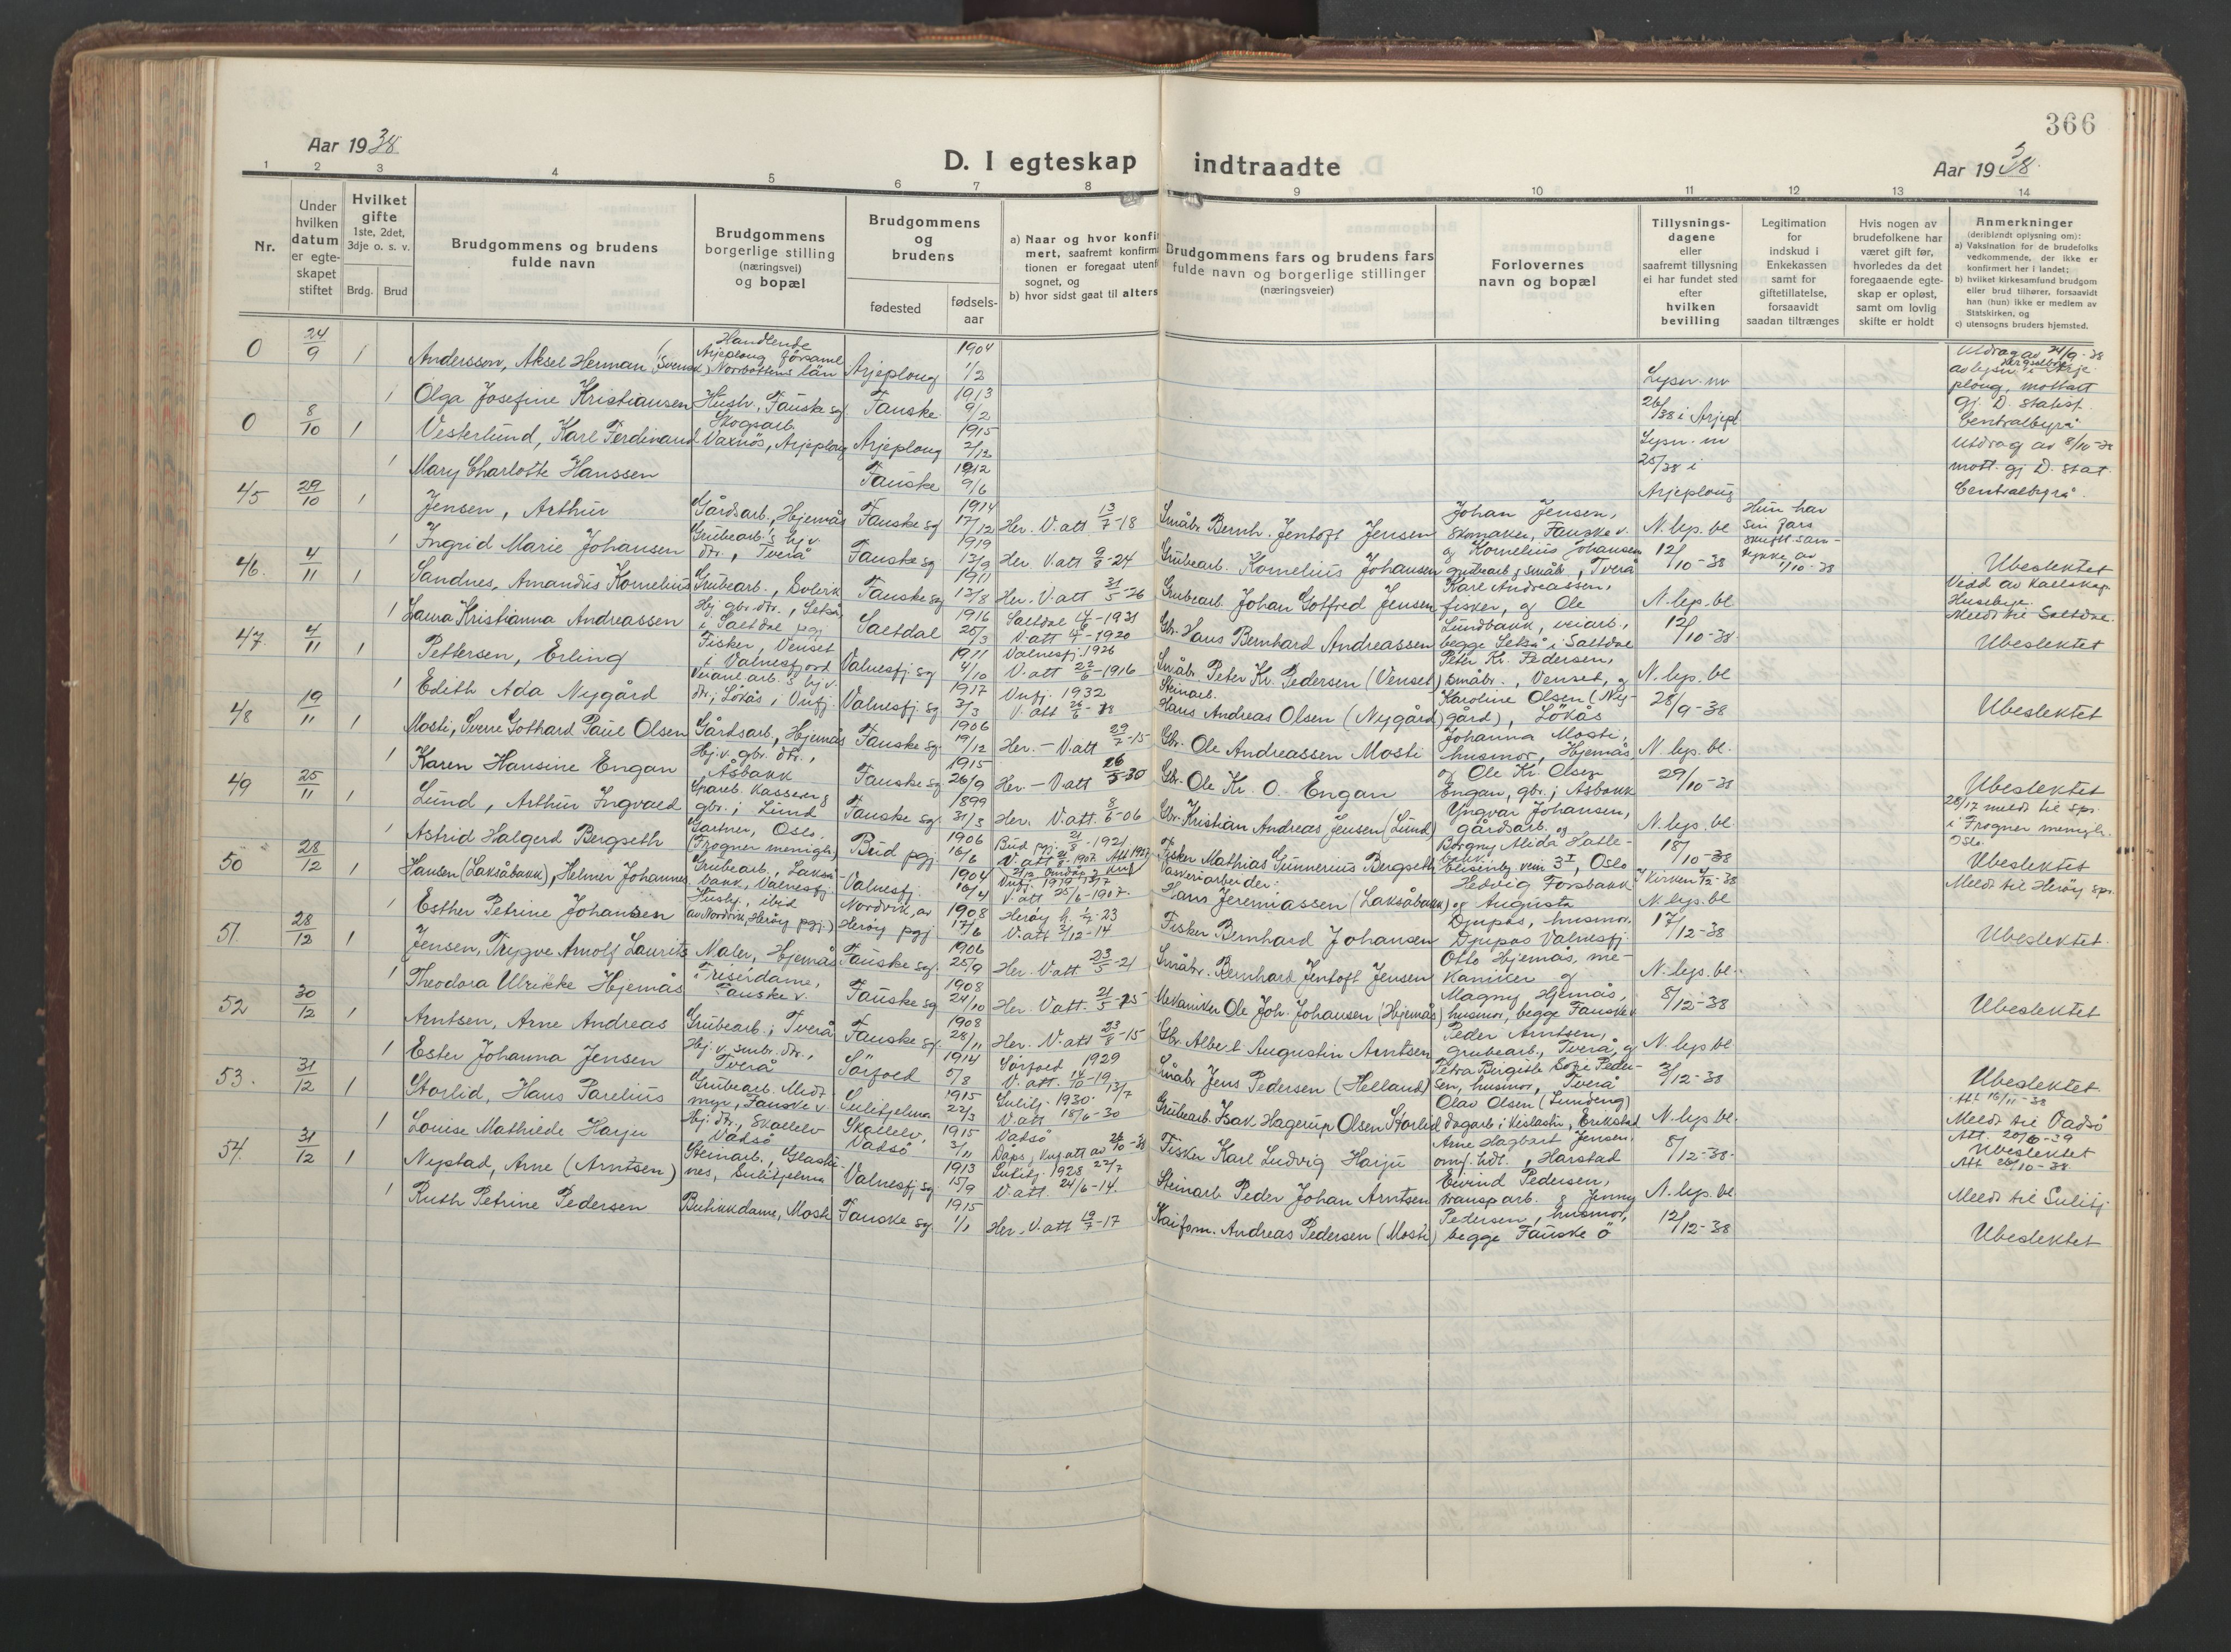 366
Aar 1938
D. I egteskap indtraadte
Aar 1938
1 2 3 4 5 6 7 8 9 10 11 12 13 14
Nr.
Under hvilken datum er egteskapet stiftet
Hvilket gifte 1ste, 2det, 3dje o. s. v.
Brdg. Brud
Brudgommens og brudens fulde navn
Brudgommens borgerlige stilling (næringsvei) og bopæl
Brudgommens og brudens
fødested
fødsels-aar
a) Naar og hvor konfir
mert, saafremt konfirm
tionen er foregaat utenf
sognet, og
b) hvor sidst gaat til alters
Brudgommens fars og brudens fars
fulde navn og borgerlige stillinger
(næringsveier)
Forlovernes
navn og bopæl
Tillysnings-
dagene
eller
saafremt tillysning
ei har fundet sted
efter
hvilken
bevilling
Legitimation
for
indskud i
Enkekassen
samt for
giftetillatelse,
forsaavidt
saadan tiltrænges
Hvis nogen av
brudefolkene har
været gift før,
hvorledes da det
foregaaende egte-
skap er opløst,
samt om lovlig
skifte er holdt
Anmerkninger
(deriblendt oplysning om):
a) Vaksination for de brudefolks
vedkommende, der ikke er
konfirmert her i landet;
b) hvilket kirkesamfund brudgom
eller brud tilhører, forsaavidt
han (hun) ikke er medlem av
Statskirken, og
c) utensogns bruders hjemsted.
0 24/9 1 Andersson, Aksel Herman (Svensk) Handlende Arjeploug församl. Norrbottens län Arjeploug 1904 1/2 Utdrag av 24/9-38
1 Olga Josefine Kristiansen Hush., Fauske sg. Fauske 1913 9/2 Lysn. nr 26/38 i Arjepl. ploug, mottatt gj. D. statist. Centralbyrå
0 8/10 1 Vesterlund, Karl Ferdinand Skogsarb. Vaxnös, Arjeploug Arjeploug 1915 2/12 Lysn. nr 25/38 i Arjeploug Utdrag av 8/10-38 mott. gj D. stat. Centralbyrå.
1 Mary Charlotte Hanssen Fauske 1912 9/6
45 29/10 1 Jensen, Arthur Gårdsarb., Hjemås Fauske sg 1914 17/12 Her. V. att 13/7-18 Småbr. Bernh. Jentoft Jensen Johan Jensen, skomaker, Fauske v. N. lys. bl Hun har sin fars skriftl. sam-tykke av 1/10-38
1 Ingrid Marie Johansen Grubearb.'s hj.v. dtr., Tverå Fauske sg 1919 13/9 Her. V. att 9/8-24 Grubearb. Kornelius Johansen og Kornelius Johansen grubearb. & småbr., Tverå 12/10-38 Ubeslektet
46. 4/11 1 Sandnes, Amandus Kornelius Grubearb., Evlerik Fauske sg 1911 12/8 Her. V. att 31/5-26 Grubearb. Johan Gotfred Jensen Karl Andreassen, fisker, og Ole N. lys. bl Meldt til Saltdal.
1 Laura Kristianna Andreassen Hj. gbr. dtr., Setså i Saltdal pgj Saltdal 1916 25/3 Saltdal 14/6-1931 V. att 4/6-1920 Gbr. Hans Bernhard Andreassen Lundbakk, veiarb., begge Setså i Saltdal 12/10-38. Ubeslektet
47. 4/11 1 Pettersen, Erling Fisker, Venset i Valnesfjord Valnesfj. sg 1911 4/10 Valnesfj. 1926 V. att 22/6-1916 Småbr. Peter Kr. Pedersen (Venset) Peter Kr. Pedersen, småbr., Venset, og N. lys. bl
1 Edith Ada Nygård dtr., Lökås i Vnfj. Valnesfj. sg 1917 3/3 Vnfj. 1932 Steinarb. Hans Andreas Olsen (Nygård) Karoline Olsen (Nygård), Lökås 28/9-38 Ubeslektet
48 19/11 1 Mosti, Sverre Gothard Paul Olsen Gårdsarb., Hjemås Fauske sg 1906 19/12 Her. - V. att 29/7-15 Gbr. Ole Andreassen Mosti Johanna Mosti, husmor, Hjemås, N. lys. bl.
1 Karen Hansine Engan Hj.v. gbr. dtr., Åsbakk Fauske sg 1915 26/9 Her - V. att 26/5-30 Gbr. Ole Kr. O. Engan og Ole Kr. Olsen Engan, gbr. i Åsbakk 29/10-38 Ubeslektet
49 25/11 1 Lund, Arthur Ingvald Spareb. kasserer & gbr. i Lund Fauske sg. 1899 31/3 Her. V. att. 8/6-06 Gbr. Kristian Andreas Jensen (Lund) Yngvar Johansen, gårdsarb. og N. lys. bl. 28/12 meldt til spr. i Frogner menigh. Oslo
1 Astrid Halgerd Bergseth Gartner, Oslo. (Frogner menigh.) Bud pgj. 1906 16/6 Bud pgj. 21/8-1921 Fisker Mathias Gunnerius Bergseth Borgny Alida Hatlebakk, vein 3 I, Oslo 18/10-38 Ubeslektet
50 28/12 1 Hansen (Laksåbakk), Helmer Johannes Grubearb., Laksåbakk, Valnesfj. Valnesfj. 1904 16/4 Vnfj. 1919 V. att 25/6-1907. Vaskeriarbeider: Hans Jeremiassen (Laksåbakk) Hedvig Forsbakk og Augusta N. lys. bl Meldt til Herøy spr.
1 Esther Petrine Johansen Husbj., ibid (av Nordvik, Herøy pgj.) Nordvik, av Herøy pgj 1908 17/6 Herøy k. 1/7-23 V. att 3/12-14 Fisker Bernhard Johansen Djupos, husmor, Djupos Valnesfj. 17/12-38 Ubeslektet.
51. 28/12 1 Jensen, Trygve Arnolf Laurits Maler, Hjemås Fauske sg. 1906 25/9 Her. V. att 23/5-21 Småbr. Bernhard Jentoft Jensen Otto Hjemås, mekaniker og N. lys. bl.
1 Theodora Ulrikke Hjemås Frisérdame, Fauske v. Fauske sg 1908 24/10 Her. V. att. 21/5-25 Mekaniker Ole Joh. Johansen (Hjemås) Magny Hjemås, husmor, begge Fauske v. 8/12-38 Ubeslektet
52 30/12 1 Arntsen, Arne Andreas Grubearb., Tverå Fauske sg. 1908 28/11 Her. V. att 23/8-15 Gbr. Albert Augustin Arntsen Peder Arntsen, grubearb., Tverå, og N. lys bl.
1 Ester Johanna Jensen Hj. v. smbr. dtr., Tverå Sörfold 1914 5/8 Sörfold 1929 V. att. 14/10-19 Småbr. Jens Pedersen (Helland) Petra Birgitte Pedersen, husmor, Tverå 3/12-38 Ubeslektet.
53. 31/12 1 Storlid, Hans Parelius Grubearb. Midtmyr, Fauske v Sulitjelma 1915 22/3 Sulitj. 1930. 13/7 V. att 18/6-30 Grubearb. Isak Hagerup Olsen Storlid Olav Olsen (Lundeng) dagarb. i Kislastn., Erikstad N. lys. bl. Att 16/11-38 Meldt til Vadsö
1 Louise Mathilde Harju Hj. dtr., Skallelv Vadsö Skallelv, Vadsö 1915 3/11 Vadsö Dåps, kuj att av 26/10-38 Fisker Karl Ludvig Harju Arne Hagbart Jensen, omf. hdl., Harstad 8/12-38. Ubeslektet
54. 31/12 1 Nystad, Arne (Arntsen) Steinarb., Glastunes, Sulitjelma Valnesfj sg 1913 15/9 Sulitj. 1928 22/7 V. att. 24/6-14. Steinarb. Peder Johan Arntsen Eivind Pedersen, transp.arb. & Jenny N. lys. bl. Meldt til Sulitj.
1 Ruth Petrine Pedersen Butikkdame, Mosti Fauske sg 1915 1/1 Her. V. att 19/7-17 Kaiform. Andreas Pedersen (Mosti) Pedersen, husmor, begge Fauske ö 12/12-38 Ubeslektet